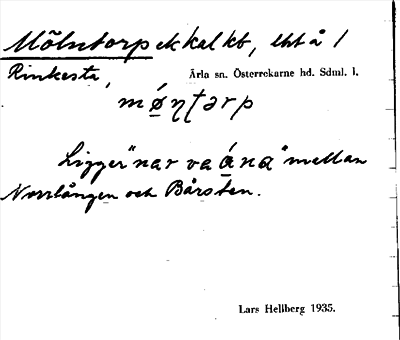 Mölntorp ek kal kb, tht å 1
Rinkesta, Ärla sn. Österrekarne hd. Sdml. l.
møṇṭarp
Ligger "nar va ána" mellan
Norrlången och Bårsten.
Lars Hellberg 1935.